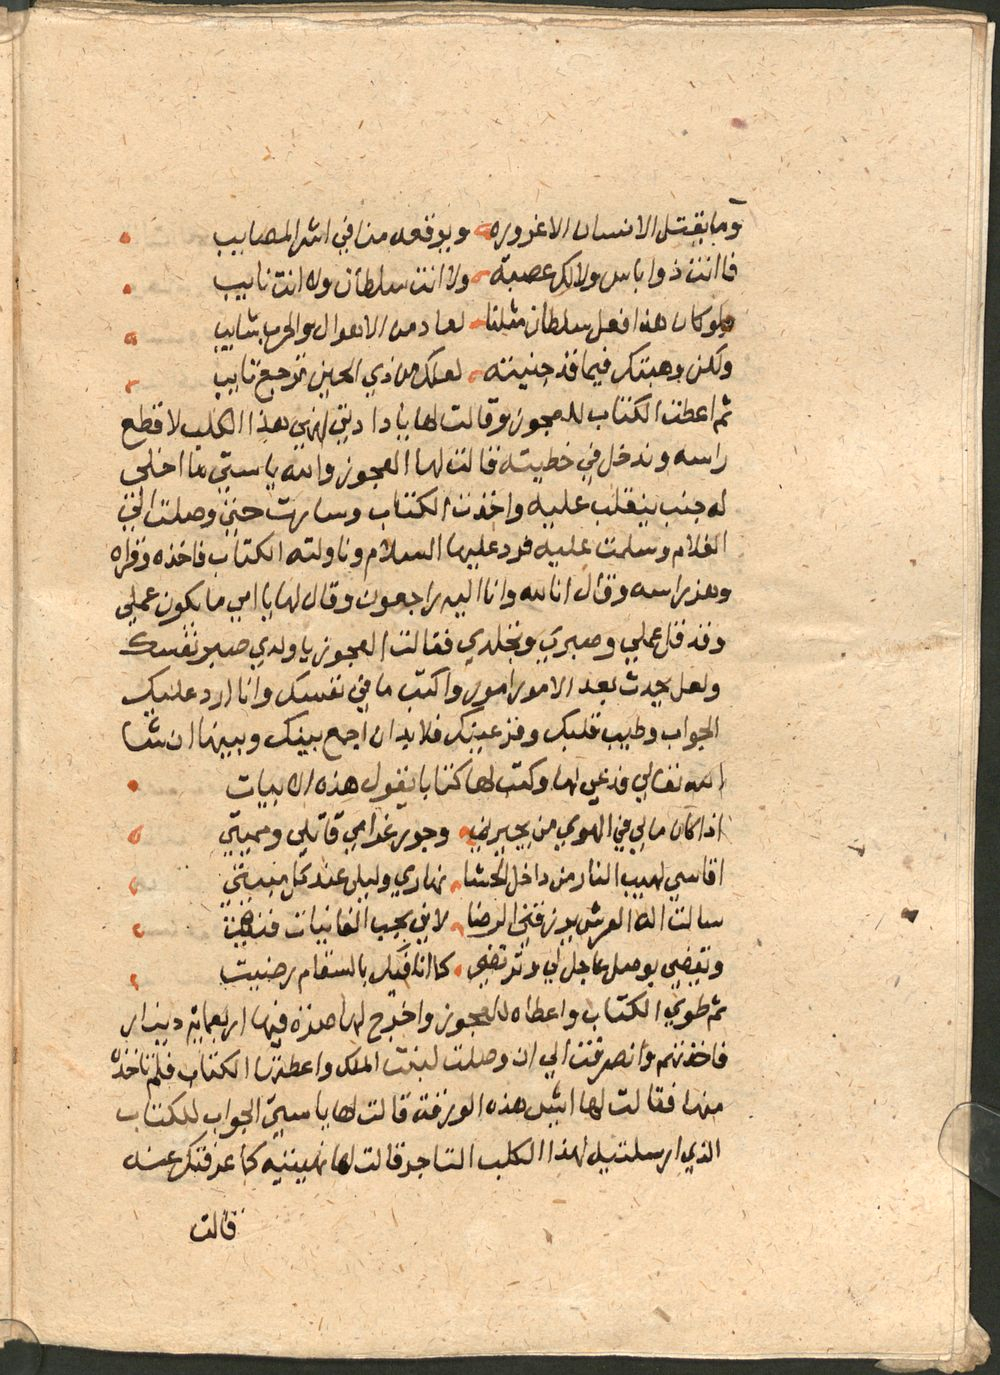 وما يقتل الانسان الا غروره ويوقعه منا في اشر المصايب
فا انت ذوا باس ولا لك عصبة ولا انت سلطان ولا انت نايب
ولو كان هذا فعل سلطان مثلنا لعاد من الاهوال والحرب شايب
ولكن وهبتك فيما قد جنيته لعلك من ذي الحين ترجع تايب
ثم اعطت الكتاب للعجوز وقالت لها يا دادتي انهي هذا الكلب لا قطع
راسه وندخل في خطيته فقالت لها العجوز والله يا ستي ما اخلي
له جنب ينقلب عليه واخذت الكتاب وسارت حتي وصلت الي
الغلام وسلمت عليه فرد عليها السلام وناولته الكتاب فاخذه وقراه
وهز راسه وقال انا لله وانا اليه راجعون وقال لها يا امي ما يكون عملي
وقد قل عملي وصبري وتجلدي فقالت العجوز يا ولدي صبر نفسك
ولعل يحدث بعد الامور امور واكتب ما في نفسك وانا ارد عليك
الجواب وطيب قلبك وقر عينك فلا بد ان اجمع بينك وبينها ان شا
الله تعالي فدعي لها وكتب لها كتابا يقول هذه الابيات
اذا كان مالي في الهوي من يجيرني وجور غرامي قاتلي ومميتي
اقاسي لهيب النار من داخل الحشا نهاري وليلي عند كل مبيتي
سالت اله العرش يرزقني الرضا لاني بحب الغانيات فنيت
وتقضي بوصل عاجل لي وترتضي كما انا فيك بالسقام رضيت
ثم طوي الكتاب واعطاه للعجوز واخرج لها صرة فيها اربعماية دينار
فاخذتهم وانصرفت الي ان وصلت لبنت الملك واعطتها الكتاب فلم تاخذه
منها فقالت لها ايش هذه الورقة قالت لها يا ستي الجواب للكتاب
الذي ارسلتيه لهذا الكلب التاجر قالت لها نهيتيه كما عرفتك عنه
قالت